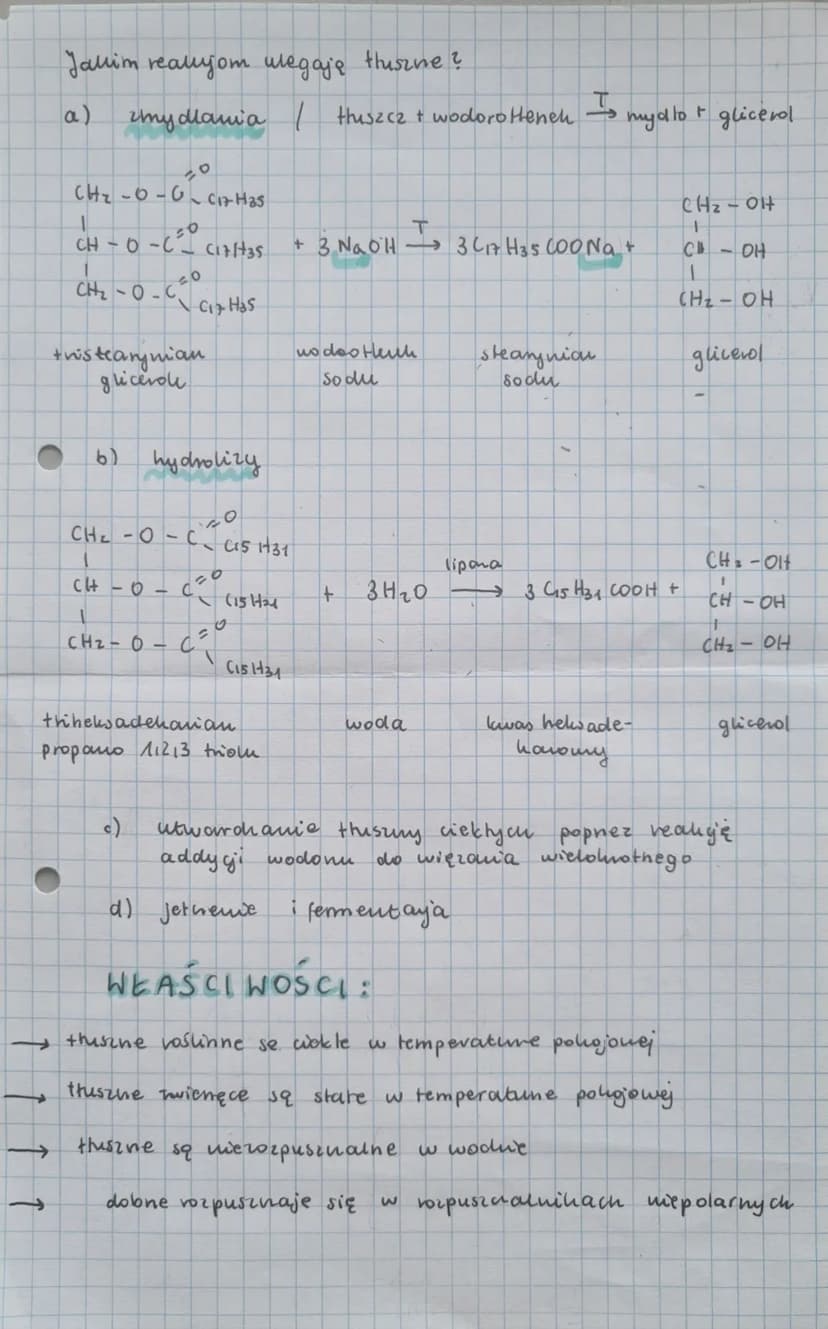 Jakim reakcjom ulegają tłuszcze?
a) zmydlania / tłuszcz + wodorotlenek T→ mydło + glicerol
CH2 - O - C =O \ C17H35
CH - O - C =O - C17H35 + 3 NaOH T→ 3 C17H35COONa +
CH2 - O - C =O \ C17H35
CH2 - OH
CH - OH
CH2 - OH
tristearynian glicerolu
wodorotlenek sodu
stearynian sodu
glicerol
b) hydrolizy
CH2 - O - C =O \ C15H31
CH - O - C =O \ C15H31 + 3H2O lipaza → 3 C15H31COOH +
CH2 - O - C =O \ C15H31
CH2 - OH
CH - OH
CH2 - OH
triheksadekanian propano 1,2,3 triolu
woda
kwas heksade-kanowy
glicerol
c) utwardzanie tłuszczy ciekłych poprzez reakcję
addycji wodoru do wiązania wielokrotnego
d) jełczenie i fermentacja
WŁAŚCIWOŚCI:
→ tłuszcze roślinne są ciekłe w temperaturze pokojowej
→ tłuszcze zwierzęce są stałe w temperaturze pokojowej
→ tłuszcze są nierozpuszczalne w wodzie
→ dobrze rozpuszczają się w rozpuszczalnikach niepolarnych